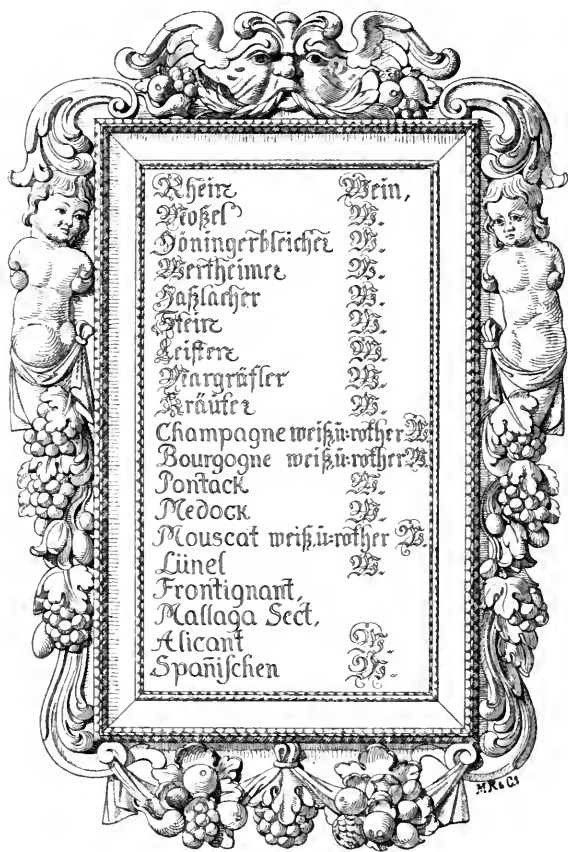 Rhein Wein,
Moßel W.
Höningerbleicher W.
Wertheimer W.
Haßlacher W.
Stein W.
Leisten W.
Margräfler W.
Kräuter W.
Champagne weiß u: rother W.
Bourgogne weiß u: rother W.
Pontack W.
Medock W.
Mouscat weiß u: rother W.
Lünel W.
Frontignant,
Mallaga Sect,
Alicant W.
Spanischen W.